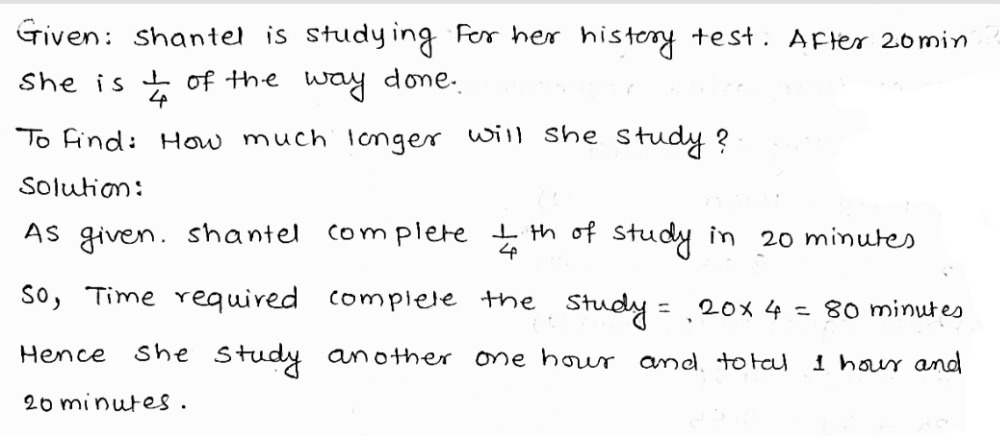 Given: Shantel is studying For her history test. After 20min
She is 1/4 of the way done.
To Find: How much longer will she study?
Solution:
As given. Shantel complete 1/4 th of study in 20 minutes
So, Time required complete the study = 20x 4 = 80 minutes
Hence She Study another one hour and total 1 hour and
20 minutes.